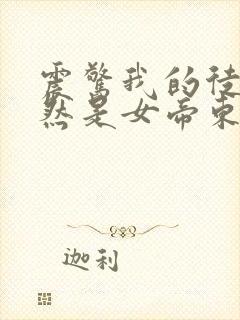 震惊我的徒
然是女帝东
迦利